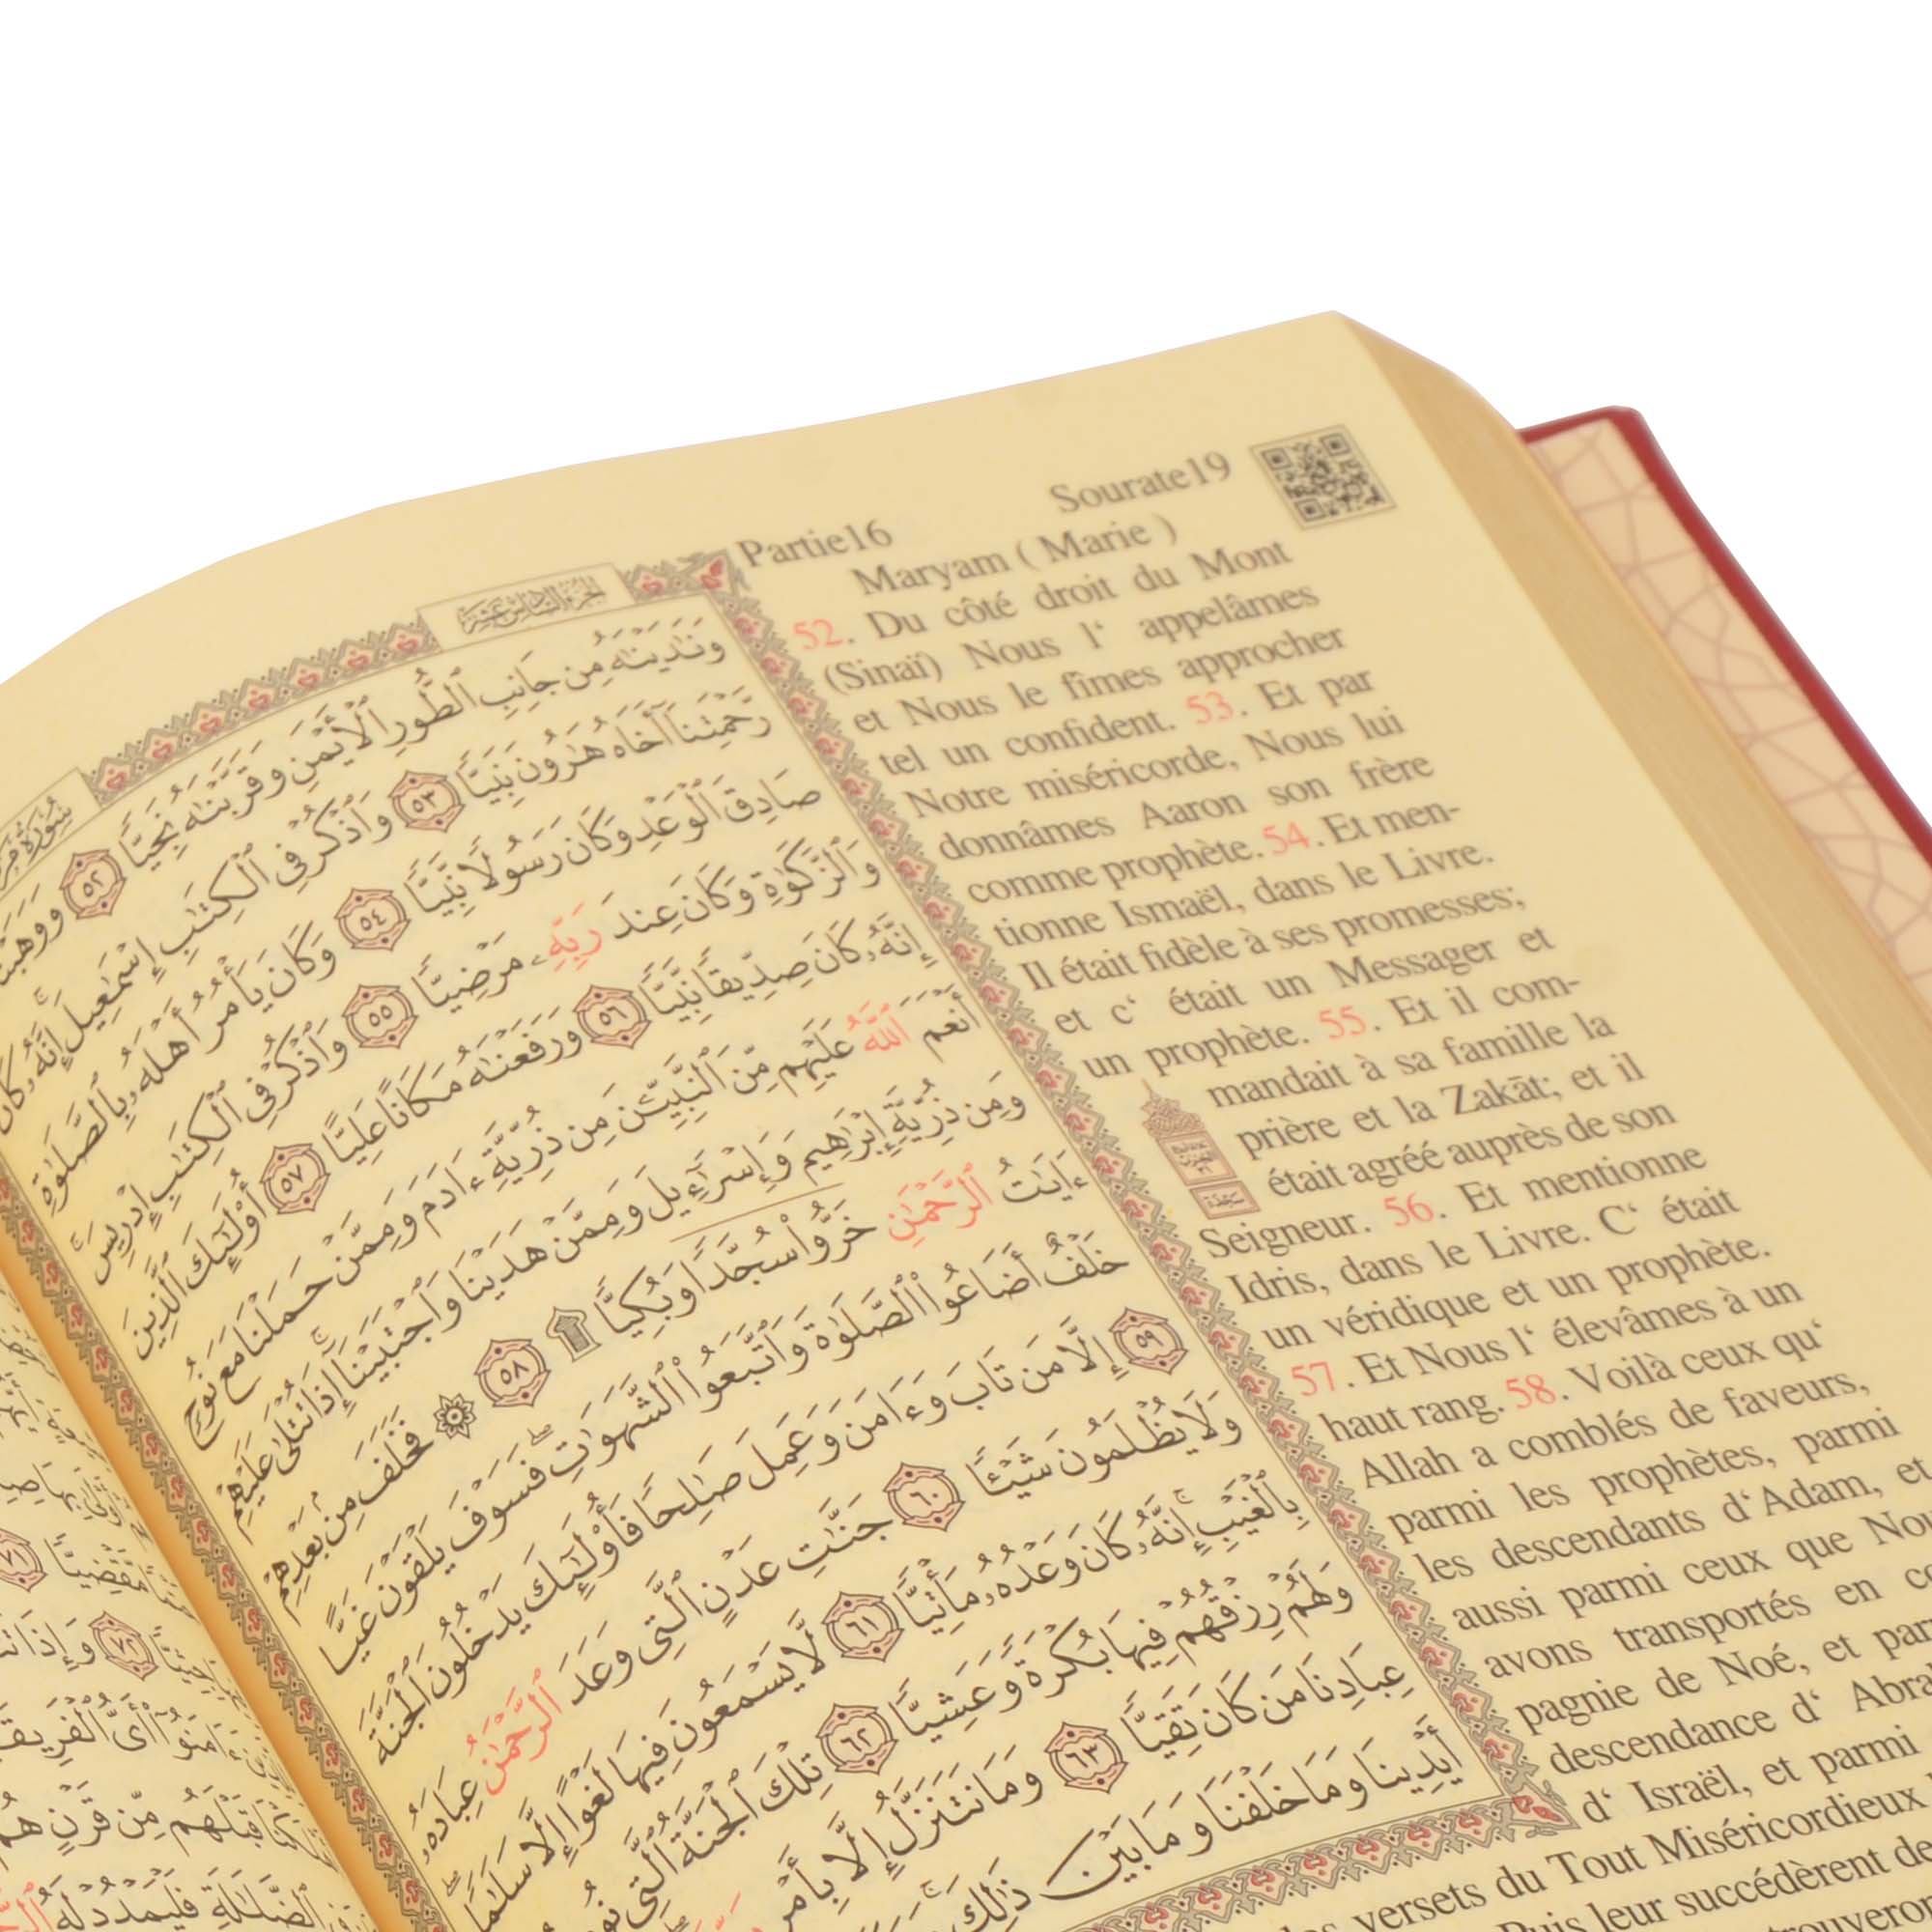 Partie16 Sourate19
Maryam ( Marie )
52. Du côté droit du Mont
(Sinaï) Nous l‘ appelâmes
et Nous le fîmes approcher
tel un confident. 53. Et par
Notre miséricorde, Nous lui
donnâmes Aaron son frère
comme prophète. 54. Et men-
tionne Ismaël, dans le Livre.
Il était fidèle à ses promesses;
et c‘ était un Messager et
un prophète. 55. Et il com-
mandait à sa famille la
prière et la Zakāt; et il
était agréé auprès de son
Seigneur. 56. Et mentionne
Idris, dans le Livre. C‘ était
un véridique et un prophète.
57. Et Nous l‘ élevâmes à un
haut rang. 58. Voilà ceux qu‘
Allah a comblés de faveurs,
parmi les prophètes, parmi
les descendants d‘Adam, et
aussi parmi ceux que
avons transportés en
pagnie de Noé, et
descendance d‘
d‘ Israël, et parmi
versets du Tout Miséricordieux
Puis leur succédèrent
الجزء السادس عشر
وَنَٰدَيْنَٰهُ مِن جَانِبِ ٱلطُّورِ ٱلْأَيْمَنِ وَقَرَّبْنَٰهُ نَجِيًّا ٥٢
رَّحْمَتِنَآ أَخَاهُ هَٰرُونَ نَبِيًّا ٥٣ وَٱذْكُرْ فِى ٱلْكِتَٰبِ إِسْمَٰعِيلَ إِنَّهُۥ كَانَ
صَادِقَ ٱلْوَعْدِ وَكَانَ رَسُولًا نَّبِيًّا ٥٤ وَكَانَ يَأْمُرُ أَهْلَهُۥ بِٱلصَّلَوٰةِ
وَٱلزَّكَوٰةِ وَكَانَ عِندَ رَبِّهِۦ مَرْضِيًّا ٥٥ وَٱذْكُرْ فِى ٱلْكِتَٰبِ إِدْرِيسَ
إِنَّهُۥ كَانَ صِدِّيقًا نَّبِيًّا ٥٦ وَرَفَعْنَٰهُ مَكَانًا عَلِيًّا ٥٧ أُو۟لَٰٓئِكَ ٱلَّذِينَ
أَنْعَمَ ٱللَّهُ عَلَيْهِم مِّنَ ٱلنَّبِيِّۦنَ مِن ذُرِّيَّةِ ءَادَمَ وَمِمَّنْ حَمَلْنَا مَعَ نُوحٍ
وَمِن ذُرِّيَّةِ إِبْرَٰهِيمَ وَإِسْرَٰٓءِيلَ وَمِمَّنْ هَدَيْنَا وَٱجْتَبَيْنَآ إِذَا تُتْلَىٰ عَلَيْهِمْ
ءَايَٰتُ ٱلرَّحْمَٰنِ خَرُّوا۟ سُجَّدًا وَبُكِيًّا ۩ ٥٨ ۞ فَخَلَفَ مِنۢ بَعْدِهِمْ
خَلْفٌ أَضَاعُوا۟ ٱلصَّلَوٰةَ وَٱتَّبَعُوا۟ ٱلشَّهَوَٰتِ فَسَوْفَ يَلْقَوْنَ غَيًّا
٥٩ إِلَّا مَن تَابَ وَءَامَنَ وَعَمِلَ صَٰلِحًا فَأُو۟لَٰٓئِكَ يَدْخُلُونَ ٱلْجَنَّةَ
وَلَا يُظْلَمُونَ شَيْـًٔا ٦٠ جَنَّٰتِ عَدْنٍ ٱلَّتِى وَعَدَ ٱلرَّحْمَٰنُ عِبَادَهُۥ
بِٱلْغَيْبِ إِنَّهُۥ كَانَ وَعْدُهُۥ مَأْتِيًّا ٦١ لَّا يَسْمَعُونَ فِيهَا لَغْوًا إِلَّا سَلَٰمًا
وَلَهُمْ رِزْقُهُمْ فِيهَا بُكْرَةً وَعَشِيًّا ٦٢ تِلْكَ ٱلْجَنَّةُ ٱلَّتِى
عِبَادِنَا مَن كَانَ تَقِيًّا ٦٣ وَمَا نَتَنَزَّلُ إِلَّا بِأَمْرِ
أَيْدِينَا وَمَا خَلْفَنَا وَمَا بَيْنَ ذَٰلِكَ